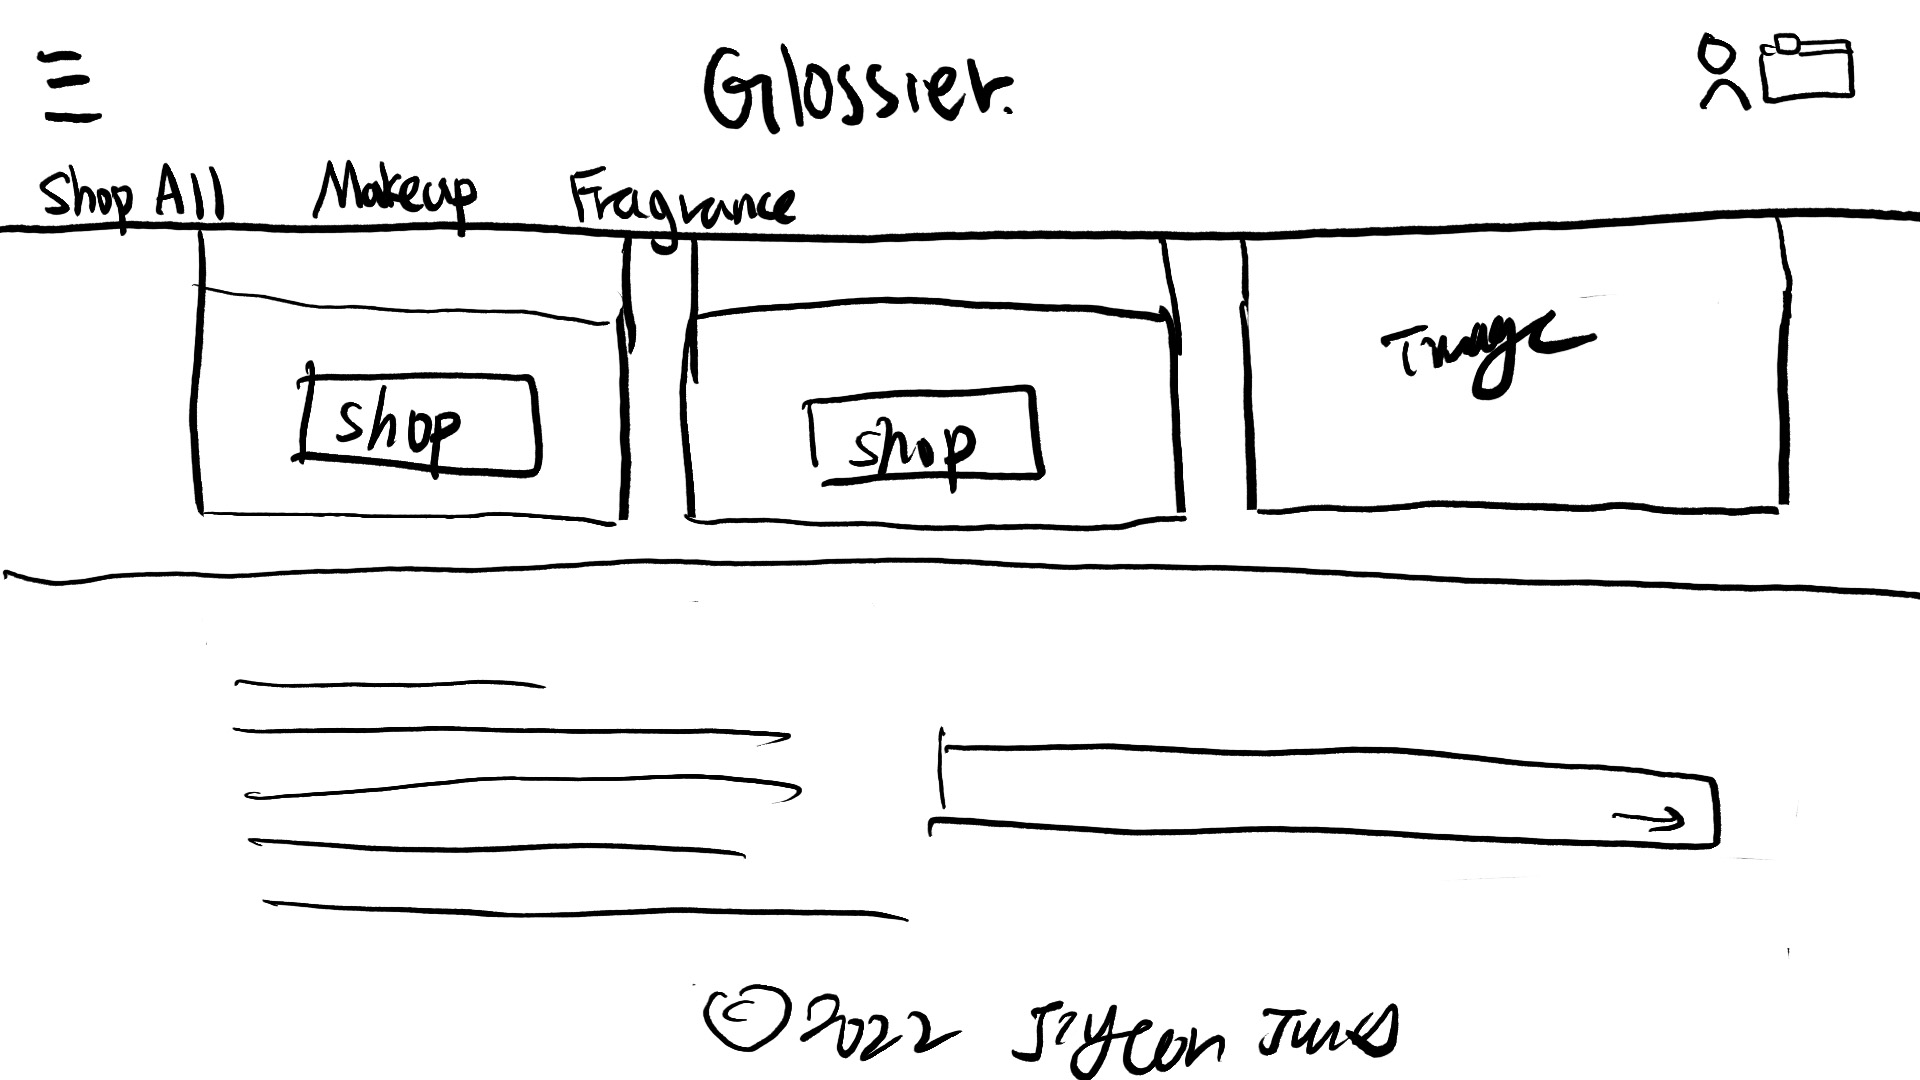 Glossier.
Shop All Makeup Fragrance
Shop
Shop
Image
© 2022 Jiyeon